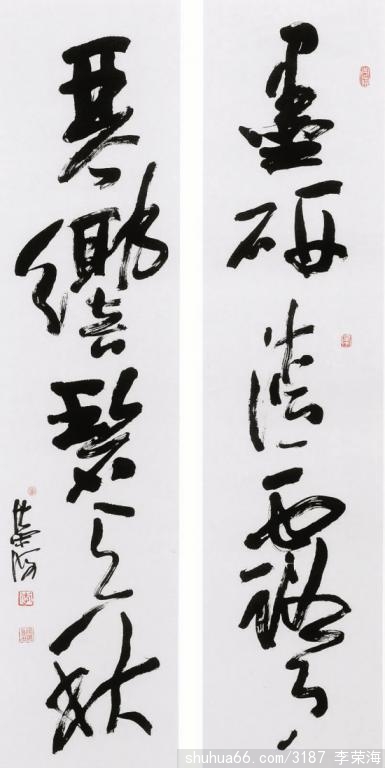 墨研清露月
琴響碧天秋
荣海
shuhua66.com/3187 李荣海